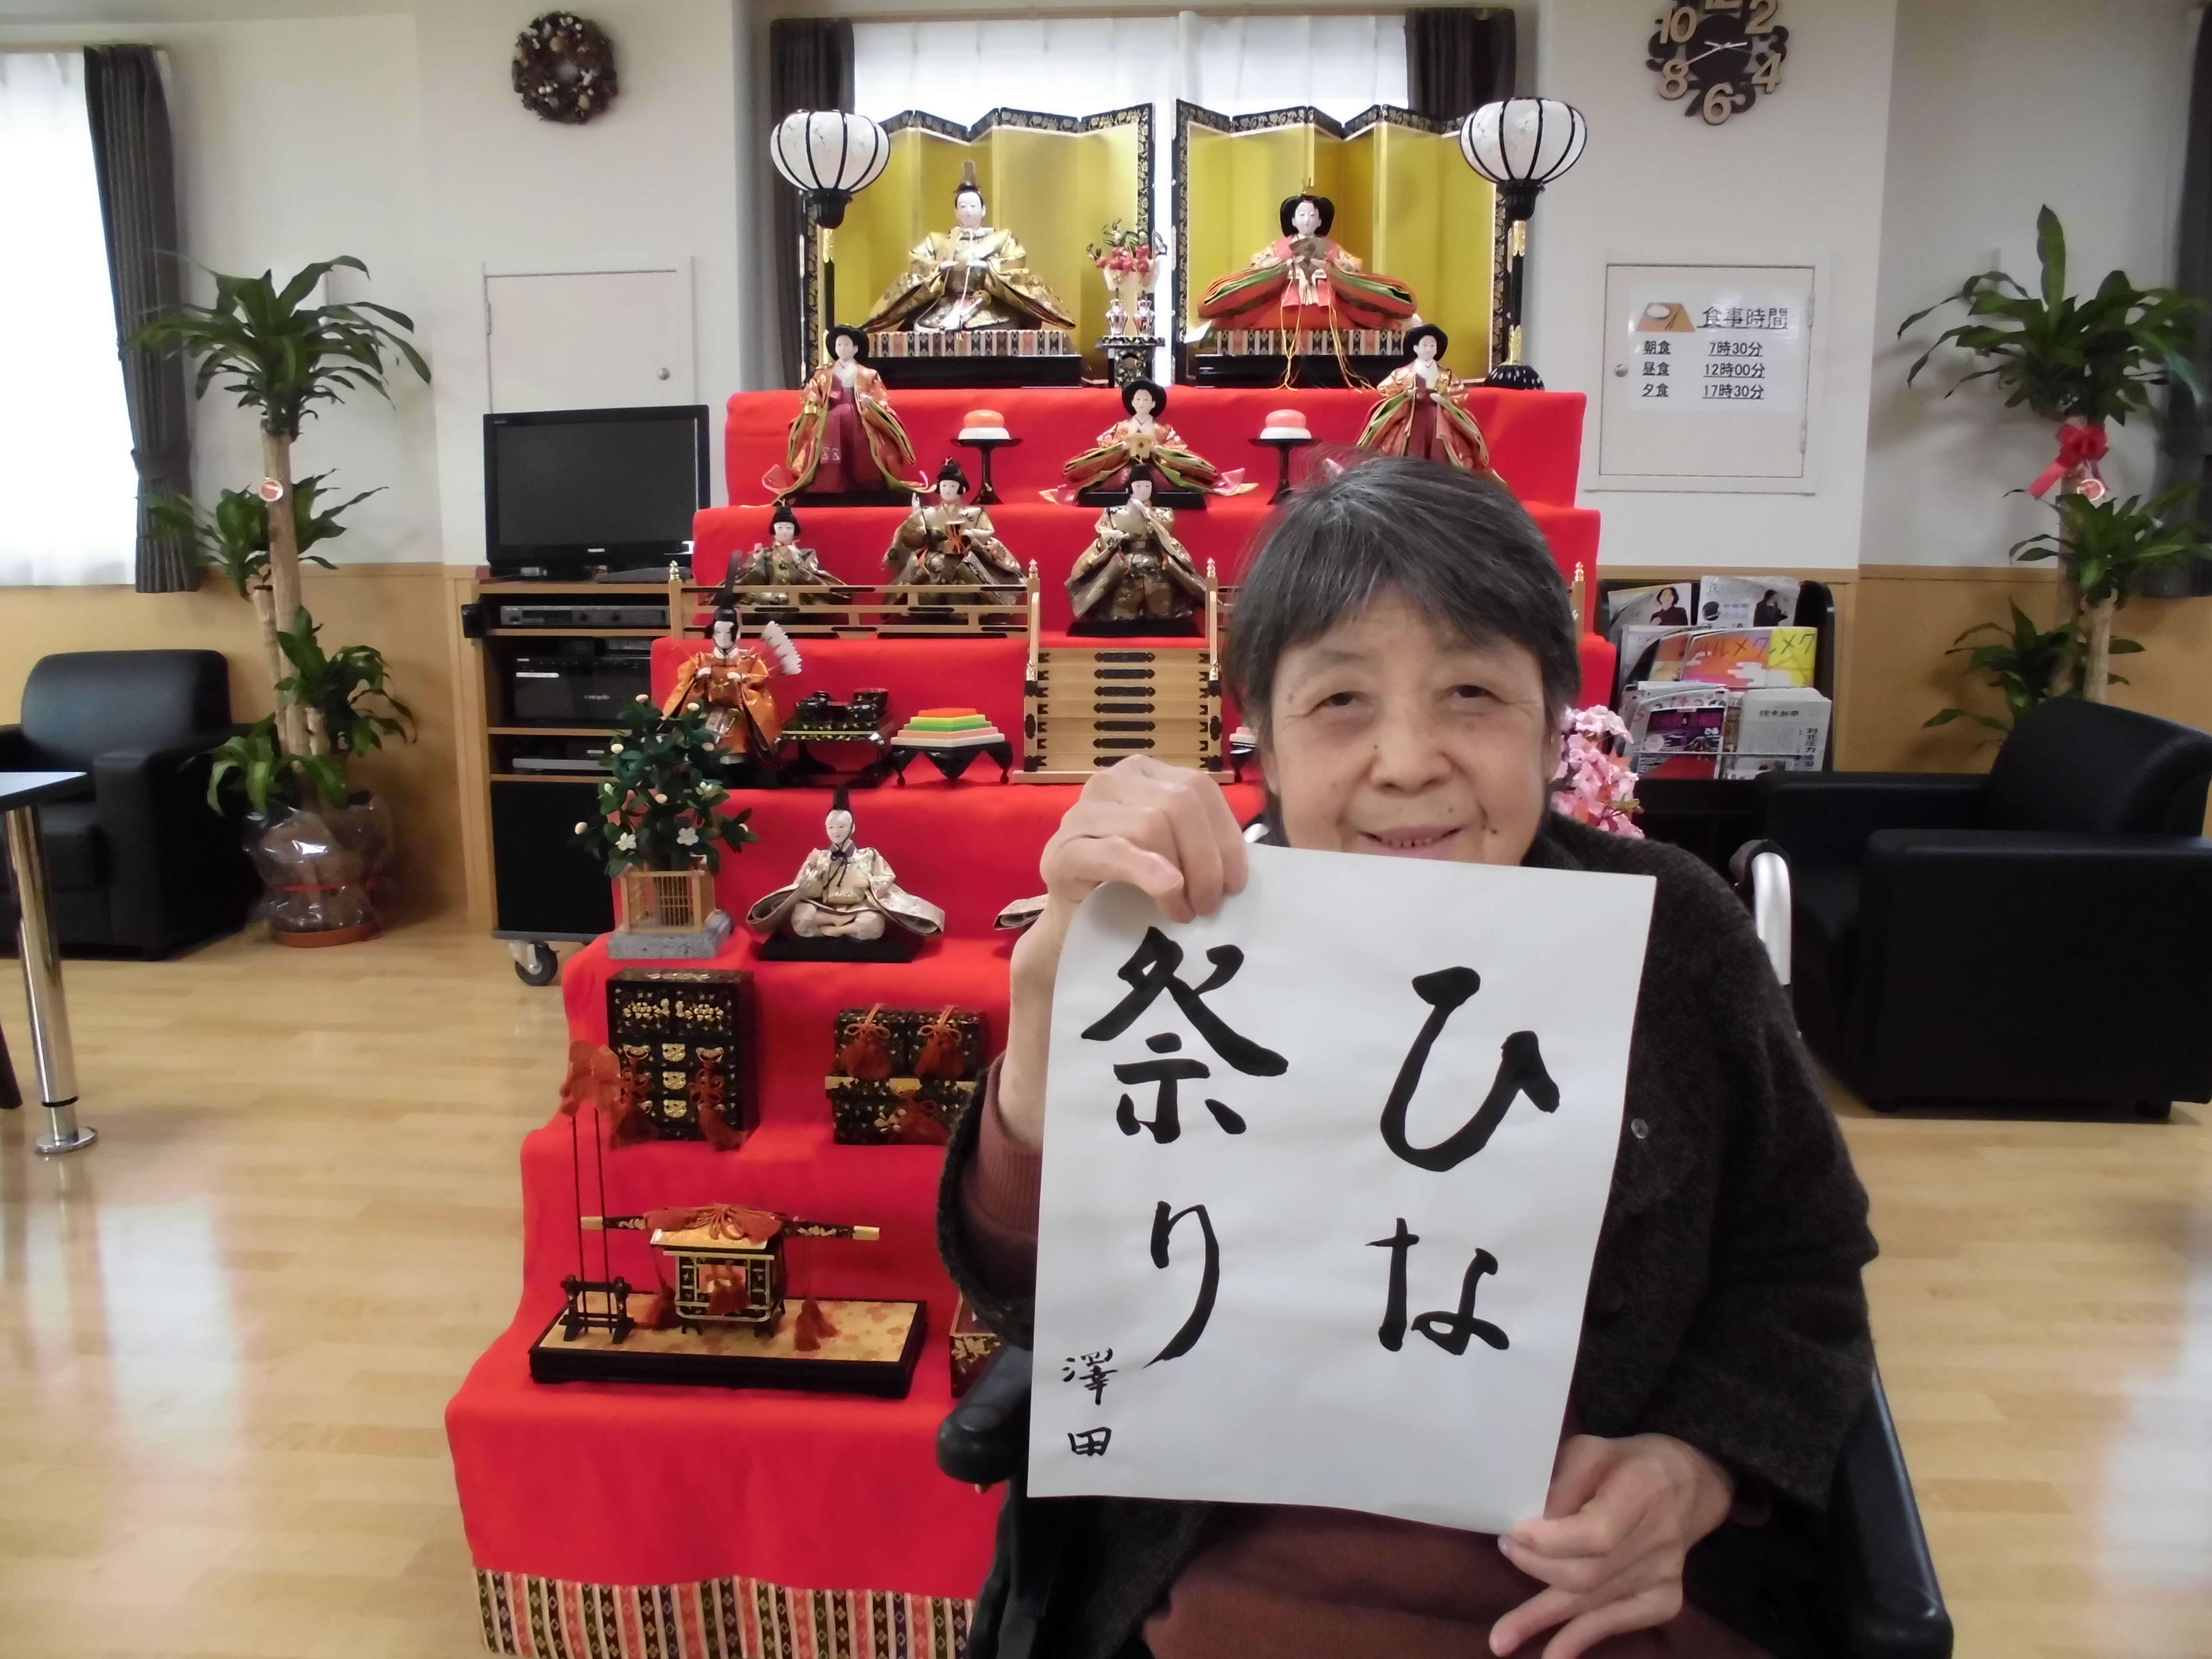 ひな
祭り
澤田
食事時間
朝食 7時30分
昼食 12時00分
夕食 17時30分
10
12
2
4
6
8